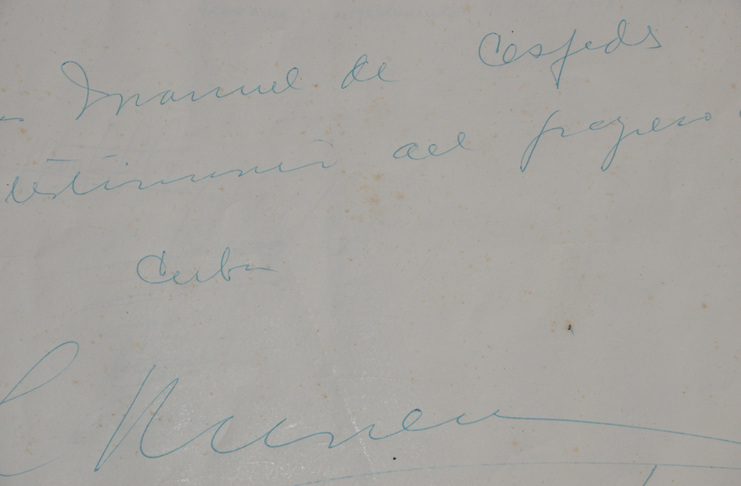 Manuel de Cespeds
testimonio del progreso
Cuba